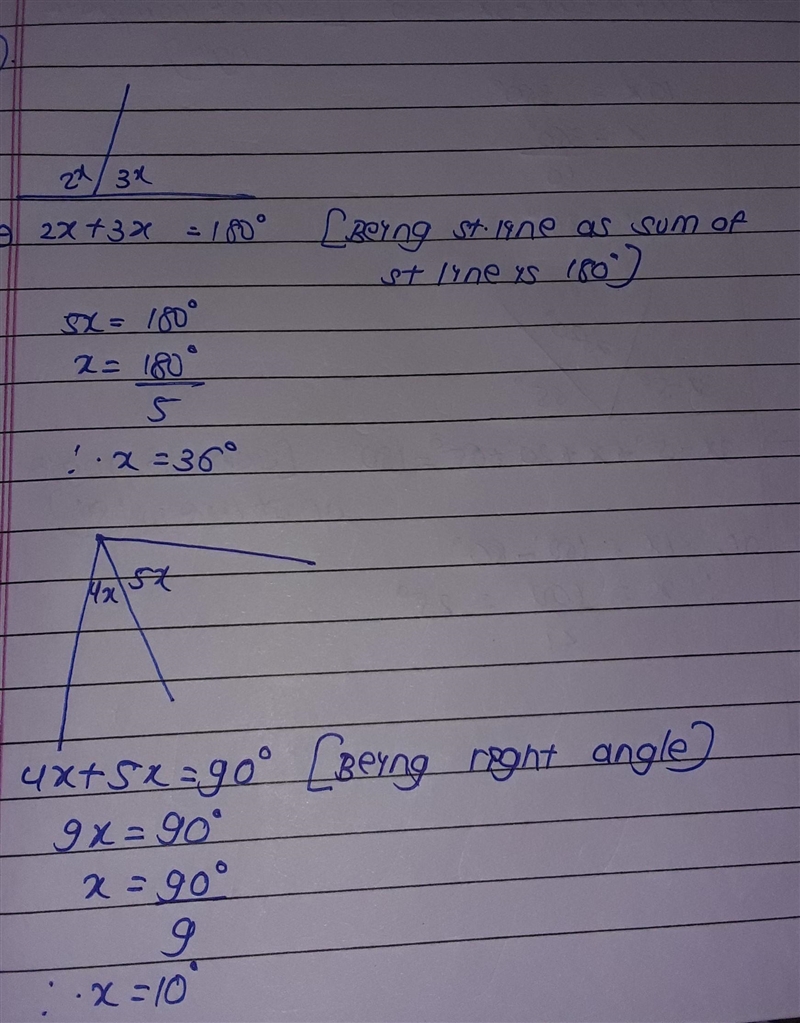 ).
2x 3x
2x + 3x = 180° [Being st. line as sum of
st line is 180°]
5x = 180°
x = 180°
5
∴ x = 36°
4x 5x
4x + 5x = 90° [Being right angle]
9x = 90°
x = 90°
9
∴ x = 10°